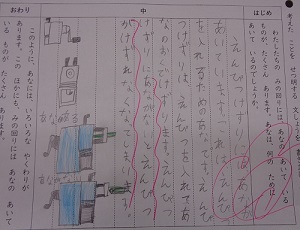 考えた ことを せつめい
はじめ
わたしたちの みの回りには あなの あいて いる
ものが たくさん あります。あなは、何の ために
あいて いるのでしょうか。
中
えんぴつけずりにはあなが
あいています。これは、えんぴつ
を入れるためのあなです。えんぴ
つけずりは、えんぴつを入れてあ
なのおくでけずります。えんぴつ
けずりにあながないとえんぴつ
がけずれなくなってしまいます。
おわり
このように、あなには、いろいろな やくわりが
あります。この ほかにも、みの回りには あなの あいて
いる ものが たくさん あります。